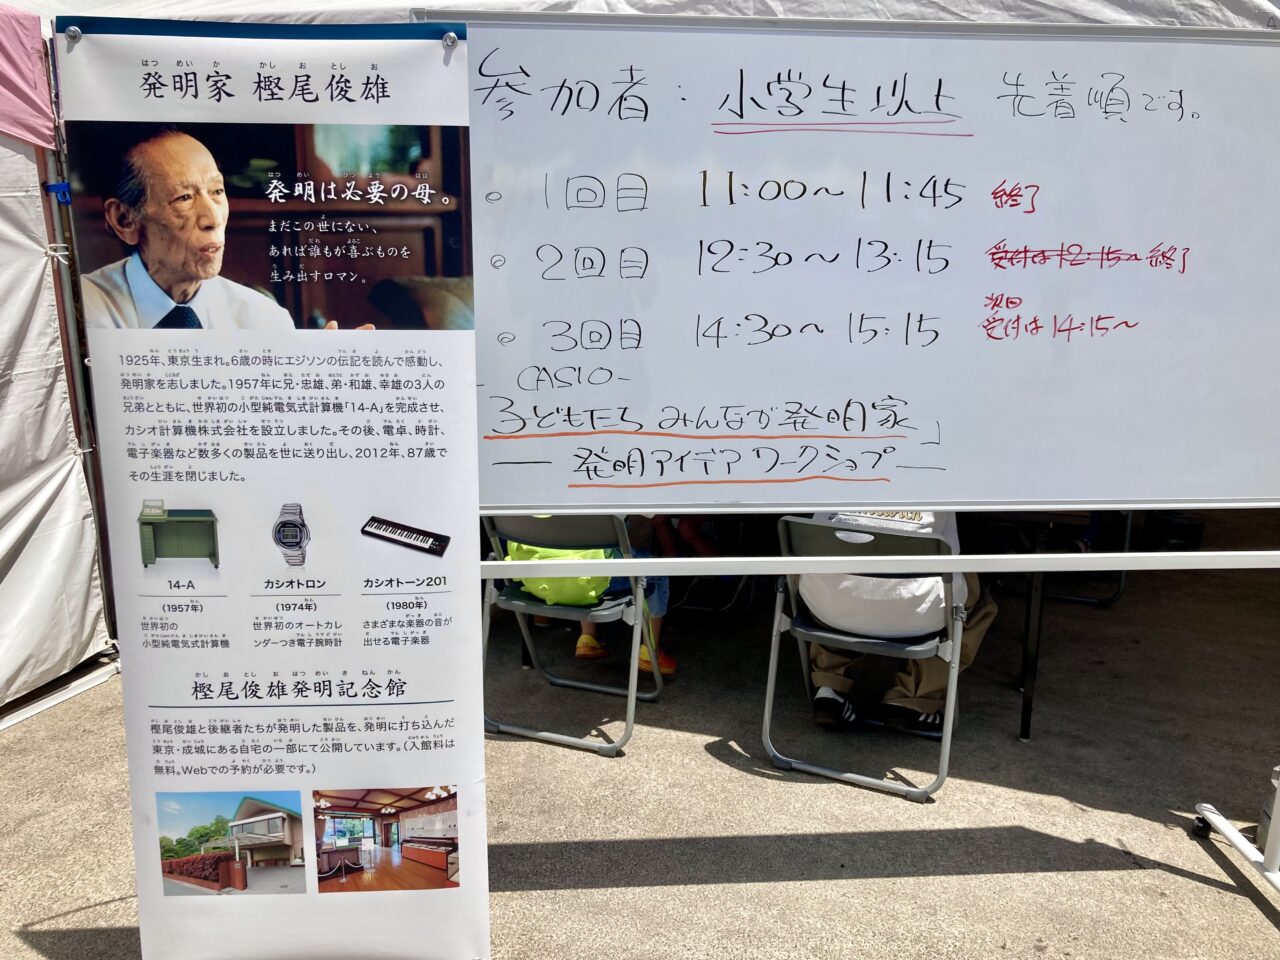 発明家 樫尾俊雄
発明は必要の母。
まだこの世にない、
あれば誰もが喜ぶものを
生み出すロマン。
1925年、東京生まれ。6歳の時にエジソンの伝記を読んで感動し、
発明家を志しました。1957年に兄・忠雄、弟・和雄、幸雄の3人の
兄弟とともに、世界初の小型純電気式計算機「14-A」を完成させ、
カシオ計算機株式会社を設立しました。その後、電卓、時計、
電子楽器など数多くの製品を世に送り出し、2012年、87歳で
その生涯を閉じました。
14-A
(1957年)
世界初の
小型純電気式計算機
カシオトロン
(1974年)
世界初のオートカレ
ンダーつき電子腕時計
カシオトーン201
(1980年)
さまざまな楽器の音が
出せる電子楽器
樫尾俊雄発明記念館
樫尾俊雄と後継者たちが発明した製品を、発明に打ち込んだ
東京・成城にある自宅の一部にて公開しています。(入館料は
無料。Webでの予約が必要です。)
参加者：小学生以上 先着順です。
○ 1回目 11:00～11:45 終了
○ 2回目 12:30～13:15 受付は12:15～終了
次回
○ 3回目 14:30～15:15 受付は14:15～
- CASIO -
子どもたち みんなが発明家」
— 発明アイデアワークショップ —